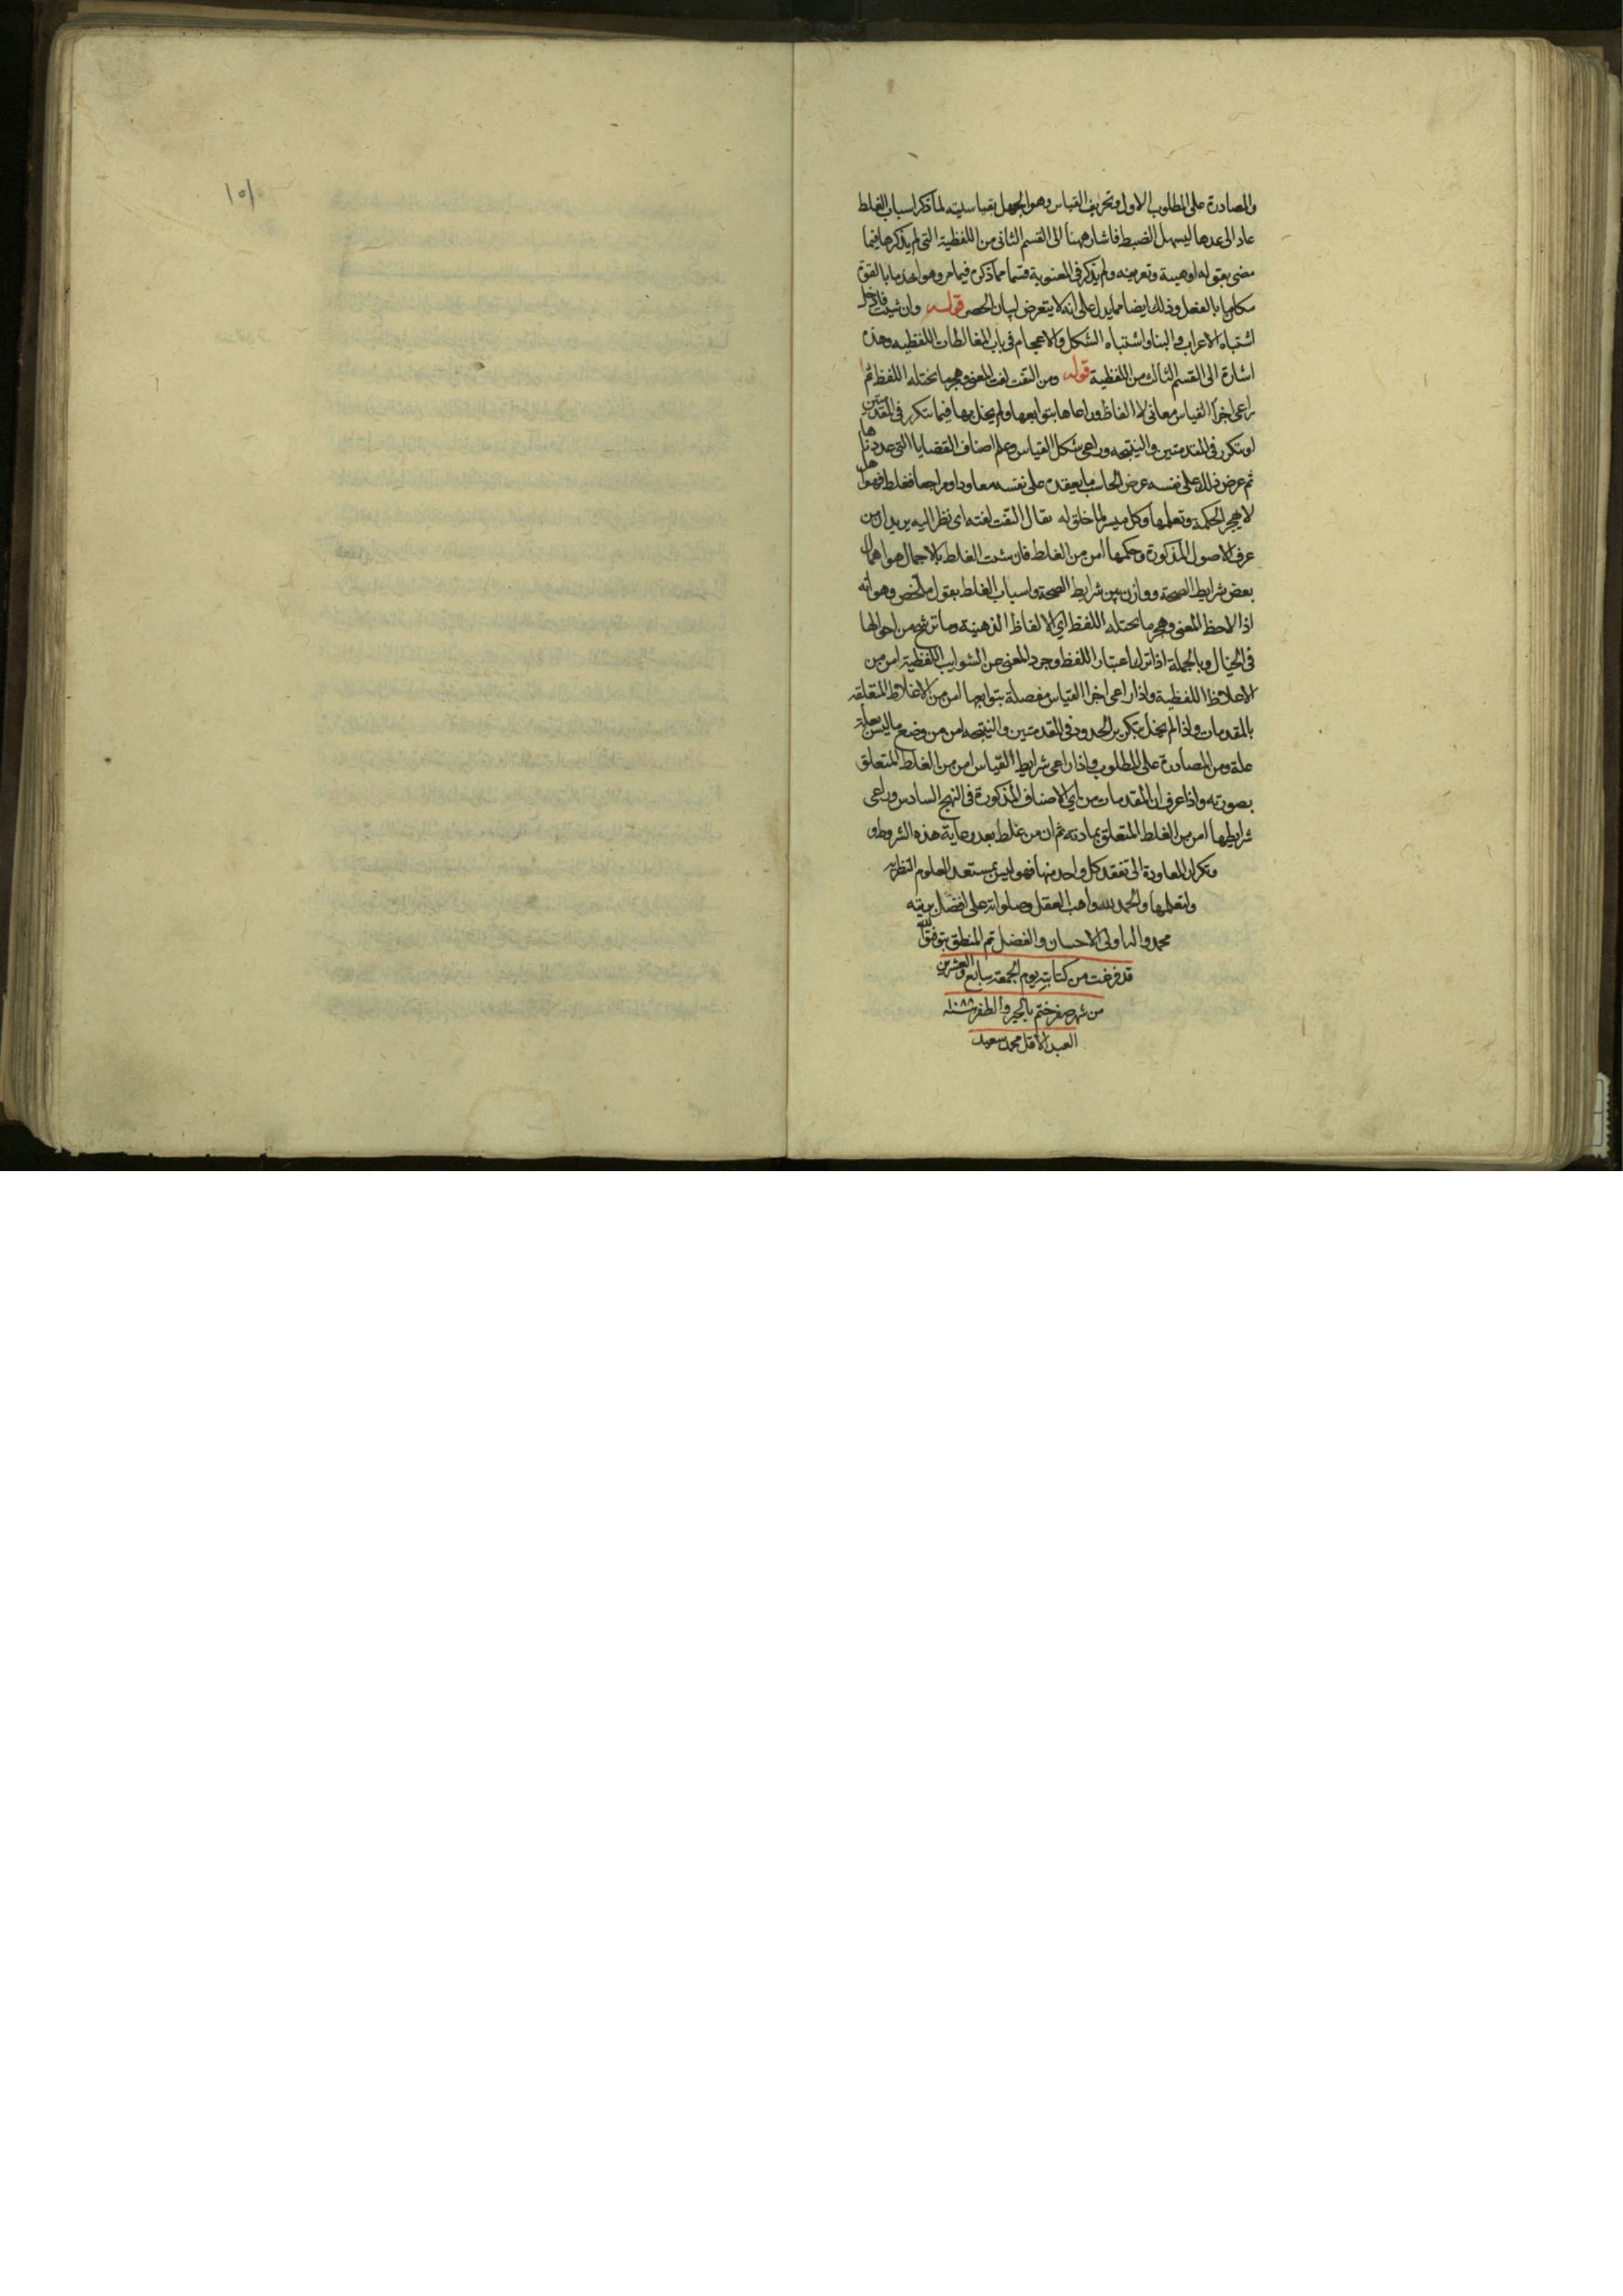 والمصادرة على المطلوب الاول وتحريف القياس وهو الجهل بقياسيته لما ذكر اسباب الغلط
عاد الى عدها ليسهل الضبط فاشار ههنا الى القسم الثانى من اللفظية التى لم يذكرها فيما
مضى بقوله او هيئة وتعريفه ولم يذكر فى المعنوية قسما مما ذكره فيما مر وهو اخذ ما بالقوة
مكان ما بالفعل وذلك ايضا مما يدل على انه لا يتعرض لبيان الحصر قوله وان شئت فادخل
اشتباه الاعراب والبنا واشتباه الشكل والاعجام فى باب المغالطات اللفظيه وهذه
اشارة الى القسم الثالث من اللفظية قوله ومن التفت لفت المعنى وهجر ما يختله اللفظ ثم
راعى اجزا القياس معانى لا الفاظا وراعاها بتوابعها ولم يخل بها فيما يتكرر فى المقدمتين
او يتكرر فى المقدمتين والنتيجه وراعى شكل القياس وعلم اصناف القضايا التى عددناها
ثم عرض ذلك على نفسه عرض الحاسب ما يعقده على نفسه معاودا ومراجعا فغلط فهو اهل
لان يهجر الحكمة وتعلمها وكل ميسر لما خلق له يقال التفت لفته اى نظر اليه يريد ان من
عرف الاصول المذكورة وحكمها امن من الغلط فان سبب الغلط بالاجمال هو اهمال
بعض شرايط الصحة ووازن بين شرايط الصحة واسباب الغلط بقول ملخص وهو انه
اذا لاحظ المعنى وهجر ما يختله اللفظ اى الالفاظ الذهنية وما ترشح من احوالها
فى الخيال وبالجملة اذا ترك اعتبار اللفظ وجرد المعنى عن الشوايب اللفظية امن من
الاغلاط اللفظية واذا راعى اجزا القياس مفصلة بتوابعها امن من الاغلاط المتعلقه
بالمقدمات واذا لم يخل بتكرير الحدود فى المقدمتين والنتيجه امن من وضع ما ليس بعلة
علة ومن المصادرة على المطلوب واذا راعى شرايط القياس امن من الغلط المتعلق
بصورته واذا عرف ان المقدمات من اى الاصناف المذكورة فى النهج السادس وراعى
شرايطها امن من الغلط المتعلق بمادته ثم ان من غلط بعد رعاية هذه الشروط و
وتكرار المعاودة الى تفقد كل واحد منها فهو ليس بمستعد للعلوم النظريه
ولتعلمها والحمد لله واهب العقل وصلواته على افضل بريته
محمد واله اولى الاحسان والفضل تم المنطق بتوفيق الله
قد فرغت من كتابته يوم الجمعة سابع والعشرين
من شهر صفر ختم بالخير والظفر سنه ١٠٨٨
العبد الاقل محمد سعيد